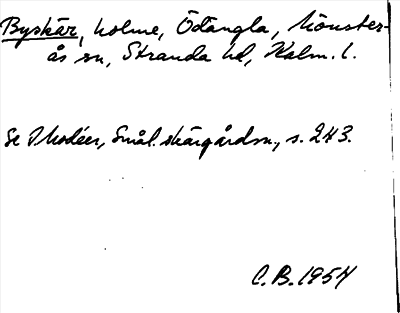 Byskär, holme, Ödängla, Mönster-
ås sn, Stranda hd, Kalm. l.
Se I. Modéer, Smål. skärgårdsn., s. 243.
C.B. 1954